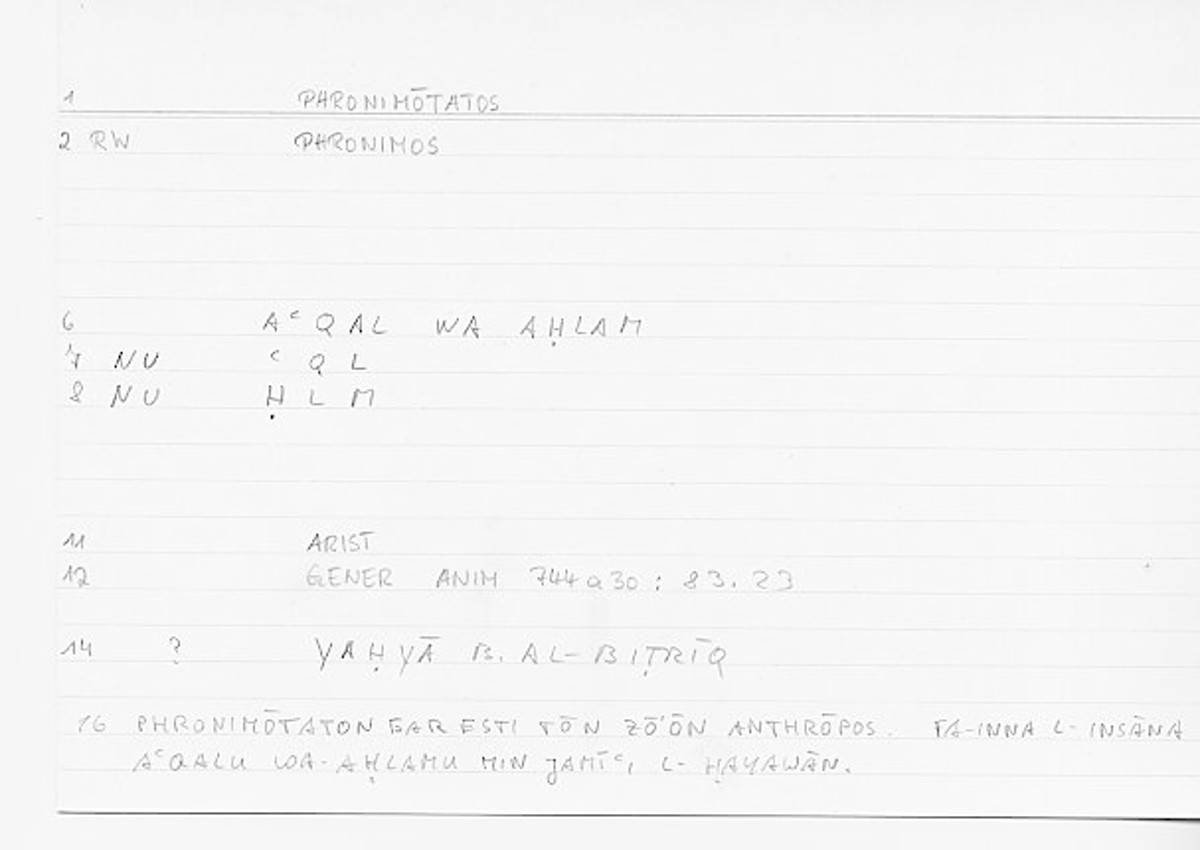 1 PHRONIMŌTATOS
2 RW PHRONIMOS
6 AᶜQAL WA AḤLAM
7 NU ᶜQL
8 NU ḤLM
11 ARIST
12 GENER ANIM 744a30 : 83.23
14 ? YAḤYĀ B. AL-BIṬRĪQ
16 PHRONIMŌTATON GAR ESTI TŌN ZŌ'ŌN ANTHRŌPOS. FA-INNA L-INSĀNA
AᶜQALU WA-AḤLAMU MIN JAMĪᶜI L-ḤAYAWĀN.